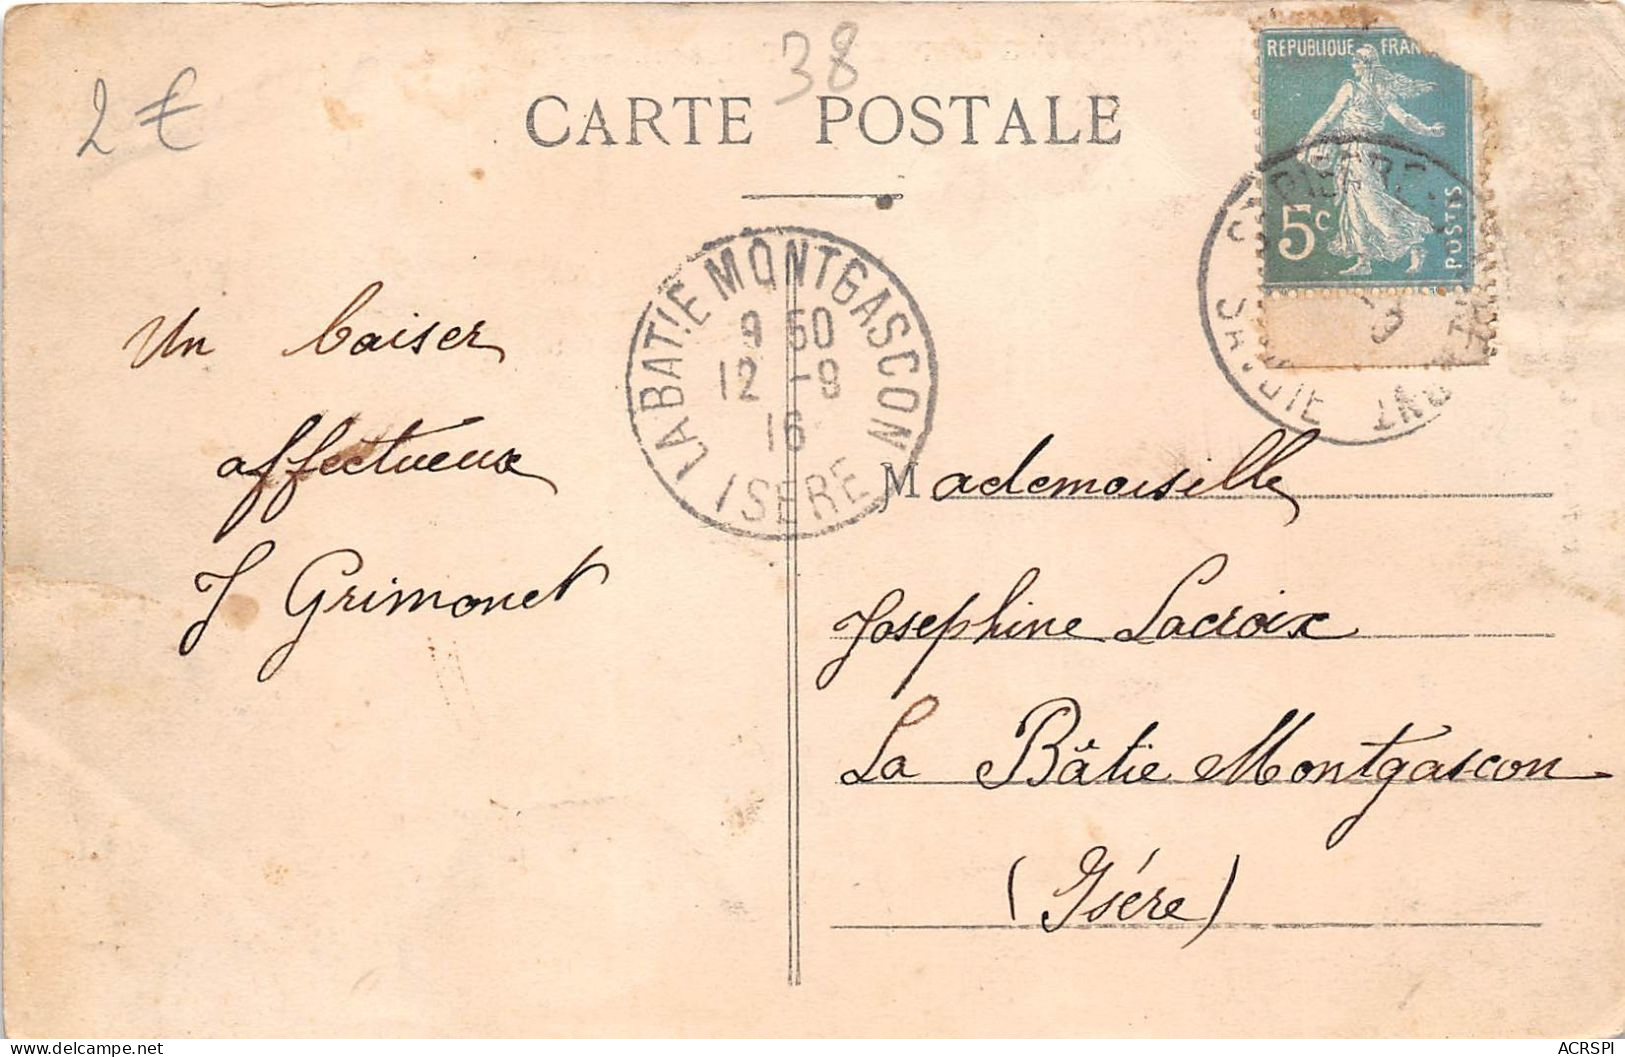 2€
38
CARTE POSTALE
REPUBLIQUE FRAN
5c
POSTES
LA BATIE MONTGASCON
9 50
12 -9
16
ISERE
Un baiser
affectueux
J Grimonet
Mademoiselle
Josephine Lacroix
La Bâtie Montgascon
(Isére)
ACRSPI